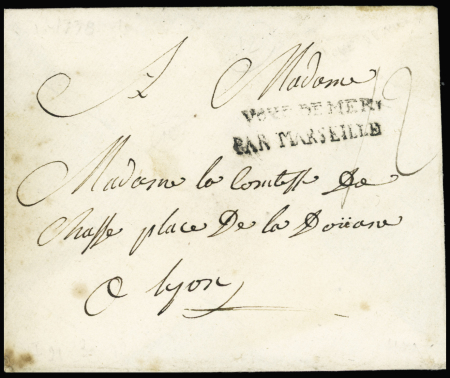 A Madame
VOIE DE MER
PAR MARSEILLE
12
Madame la Comtesse De
Chasse place De la Doüane
a Lyon